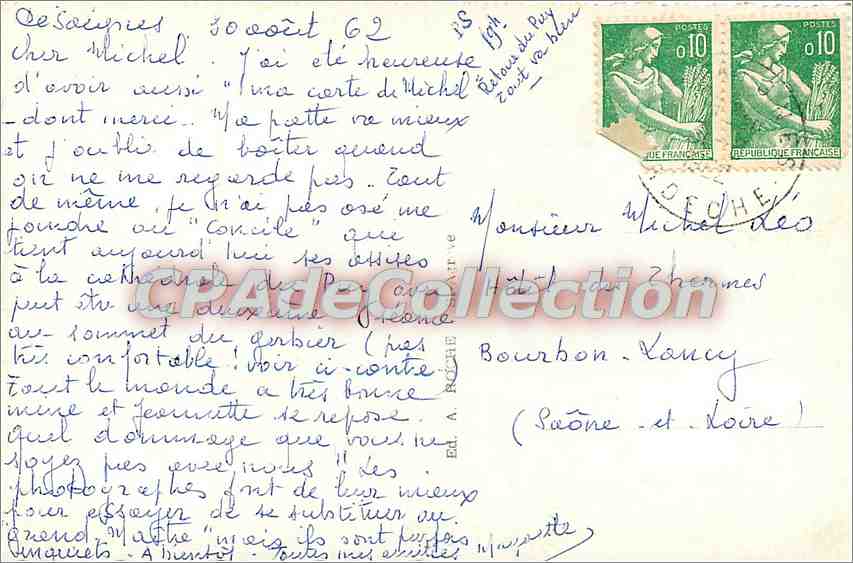 Desaignes 30 août 62
Cher Michel. J'ai été heureuse
d'avoir aussi "ma carte de Michel
- dont merci.. Ma patte va mieux
et j'oublie de boîter quand
on ne me regarde pas.. Tout
de même, je n'ai pas osé me
joindre au "Concile" que
tient aujourd'hui ses assises
à la cathédrale du Puy avec
peut être une deuxième séance
au sommet du gerbier (pas
très confortable ! voir ci-contre
Tout le monde a très bonne
mine et Jeannette se repose.
Quel dommage que vous ne
soyez pas avec nous" Les
photographes font de leur mieux
pour essayer de se substituer au
"grand Maître" mais ils sont parfois
inquiets - A bientôt - Toutes mes amitiés
PS 19h
Retour du Puy
tout va bien
Ed. A. ROCHE
POSTES
0,10
RÉPUBLIQUE FRANÇAISE
POSTES
0,10
QUE FRANÇAISE
ARDECHE
Monsieur Michel Léo
Hôtel des Thermes
Bourbon-Lancy
(Saône-et-Loire)
CPAdeCollection